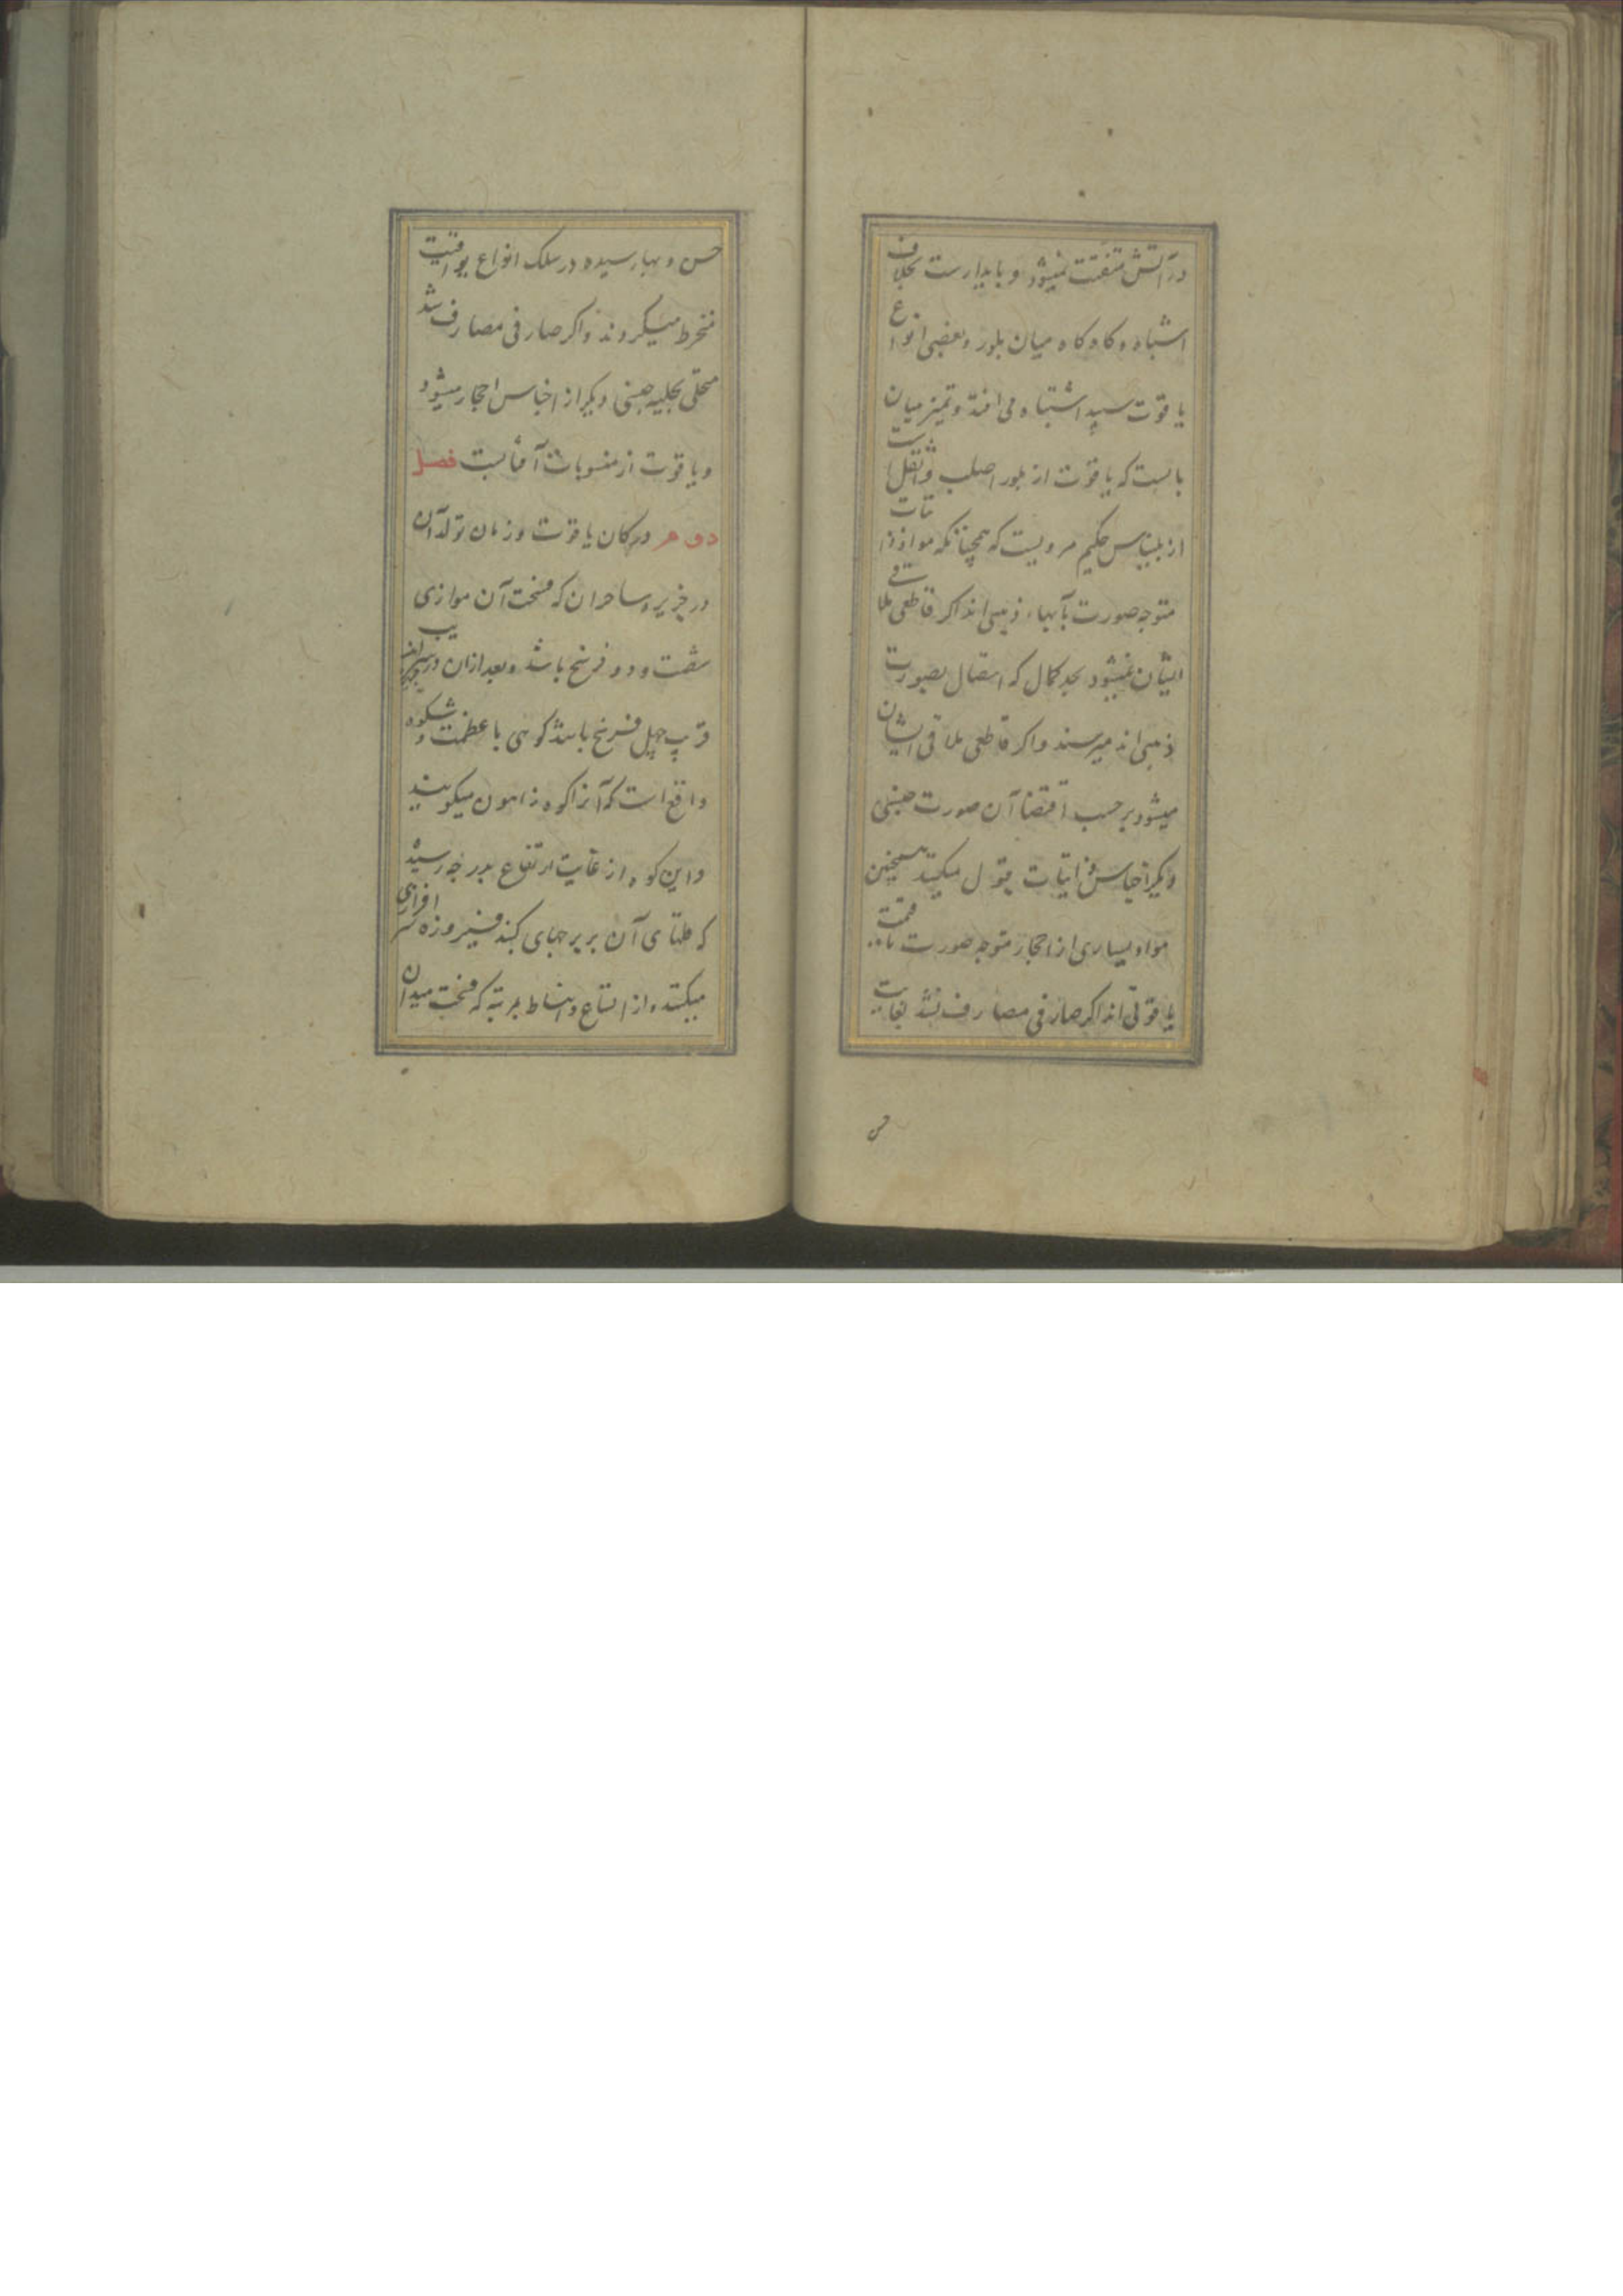 در آتش متفتت نمیشود و پایدارست بخلاف
اشباه و کاه کاه میان بلور و بعضی انواع
یاقوت سپید اشتباه می افتد و تمیز میان
بانست که یاقوت از بلور اصلب و اثقل است
از بلیناس حکیم مرویست که همچنانکه مواد فلزات
متوجه صورت بآبهاء ذهبی اند اکر قاطعی ملاقی
ایشان نمیشود بحد کمال که اتصال بصورت
ذهبی اند میرسند و اکر قاطعی ملاقی ایشان
میشود بر حسب اقتضا آن صورت جنسی
دیکر اجناس ذاتیات قبول میکنند همچنین
مواد بسیاری از احجار متوجه صورت با قیمت
یاقوتی اند اکر صارفی مصارف نشد بغایت
حسن
حسن و بهاء رسیده در سلک انواع یواقیت
منخرط میکردند و اکر صارفی مصارف شد
متحلی بحلیه جنسی دیکر از اجناس احجار میشود
و یاقوت از منسوبات آفتابست فصل
دوم در کان یاقوت و زمان تولد آن
در جزیره ساحران که فسحت آن موازی
شصت و دو فرسخ باشد و بعد از ان در
قرب چهل فرسخ باشد کوهی با عظمت و شکوه
واقع است که آنرا کوه زاهون میکویند
و این کوه از غایت ارتفاع بدرجه رسیده
که طلتای آن بر برجهای کنبد فیروزه سر افرازی
میکنند و از اتساع و انبساط بمرتبه که فسحت میدان